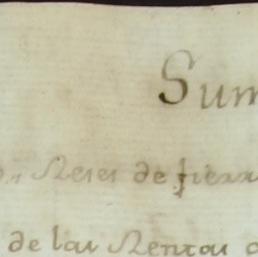 Sum
Reses de fierr
de las Rentas